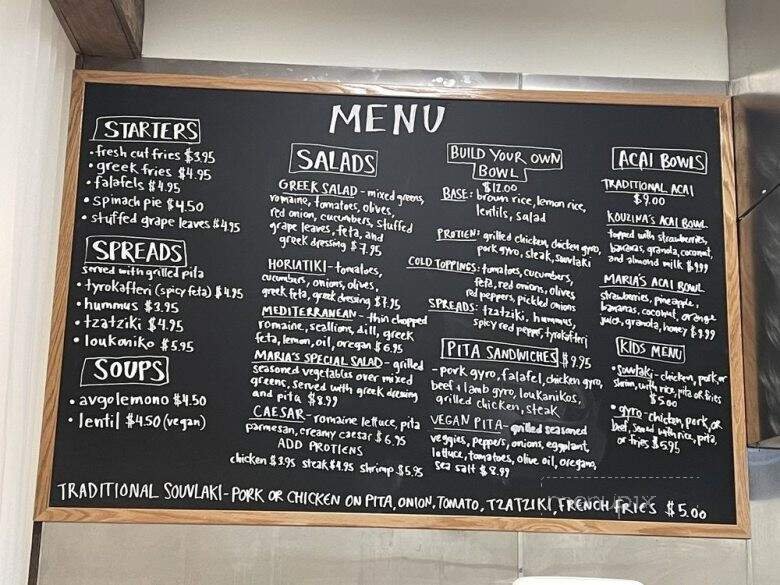 MENU
STARTERS
• fresh cut fries $3.95
• greek fries $4.95
• falafels $4.95
• spinach pie $4.50
• stuffed grape leaves $4.95
SPREADS
served with grilled pita
• tyrokafteri (spicy feta) $4.95
• hummus $3.95
• tzatziki $4.95
• loukaniko $5.95
SOUPS
• avgolemono $4.50
• lentil $4.50 (vegan)
SALADS
GREEK SALAD - mixed greens,
romaine, tomatoes, olives,
red onion, cucumbers, stuffed
grape leaves, feta, and
greek dressing $7.95
HORIATIKI - tomatoes,
cucumbers, onions, olives,
greek feta, greek dressing $7.95
MEDITERRANEAN - thin chopped
romaine, scallions, dill, greek
feta, lemon, oil, oregan $6.95
MARIA'S SPECIAL SALAD - grilled
seasoned vegetables over mixed
greens, served with greek dressing
and pita $8.99
CAESAR - romaine lettuce, pita
parmesan, creamy caesar $6.95
ADD PROTIENS
chicken $3.95 steak $4.95 shrimp $5.95
BUILD YOUR OWN
BOWL
$12.00
BASE: brown rice, lemon rice,
lentils, salad
PROTIEN: grilled chicken, chicken gyro,
pork gyro, steak, souvlaki
COLD TOPPINGS: tomatoes, cucumbers,
feta, red onions, olives
red peppers, pickled onions
SPREADS: tzatziki, hummus,
spicy red pepper, tyrokafteri
PITA SANDWICHES $9.95
- pork gyro, falafel, chicken gyro,
beef + lamb gyro, loukanikos,
grilled chicken, steak
VEGAN PITA - grilled seasoned
veggies, peppers, onions, eggplant,
lettuce, tomatoes, olive oil, oregano,
sea salt $8.99
ACAI BOWLS
TRADITIONAL ACAI
$9.00
KOUZINA'S ACAI BOWL
topped with strawberries,
bananas, granola, coconut,
and almond milk $9.99
MARIA'S ACAI BOWL
strawberries, pineapple,
bananas, coconut, orange
juice, granola, honey $9.99
KIDS MENU
• Souvlaki - chicken, pork, or
shrim, with rice, pita or fries
$5.00
• gyro - chicken, pork, or
beef, served with rice, pita,
or fries $5.95
TRADITIONAL SOUVLAKI - PORK OR CHICKEN ON PITA, ONION, TOMATO, TZATZIKI, FRENCH FRIES $5.00
menupix